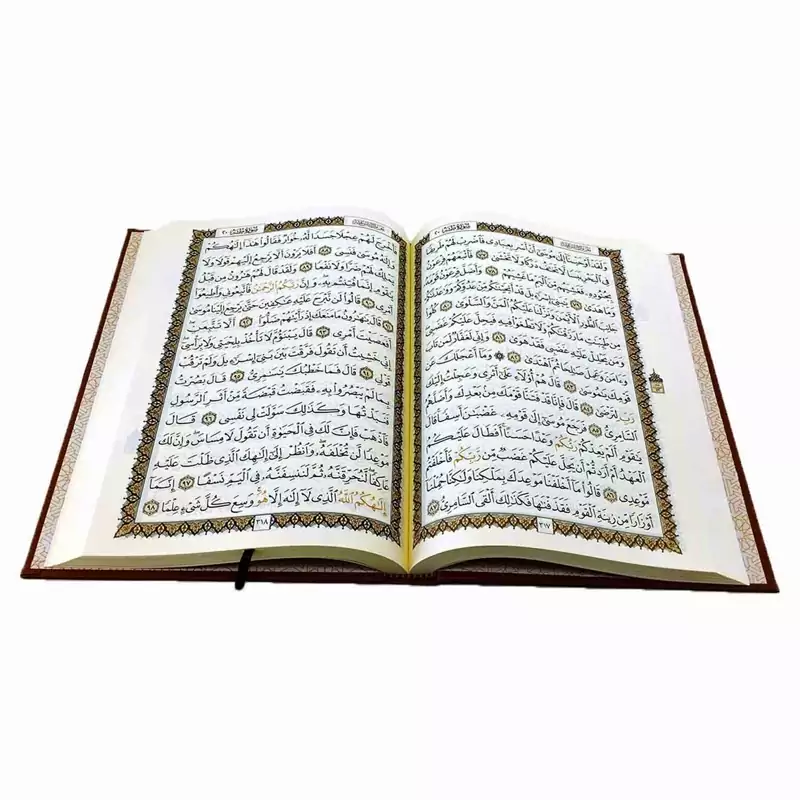 سورة طه ٢٠
وَلَقَدْ أَوْحَيْنَآ إِلَىٰ مُوسَىٰٓ أَنْ أَسْرِ بِعِبَادِى فَٱضْرِبْ لَهُمْ طَرِيقًا
فِى ٱلْبَحْرِ يَبَسًا لَّا تَخَٰفُ دَرَكًا وَلَا تَخْشَىٰ ٧٧ فَأَتْبَعَهُمْ فِرْعَوْنُ
بِجُنُودِهِۦ فَغَشِيَهُم مِّنَ ٱلْيَمِّ مَا غَشِيَهُمْ ٧٨ وَأَضَلَّ فِرْعَوْنُ قَوْمَهُۥ
وَمَا هَدَىٰ ٧٩ يَٰبَنِىٓ إِسْرَٰٓءِيلَ قَدْ أَنجَيْنَٰكُم مِّنْ عَدُوِّكُمْ وَوَٰعَدْنَٰكُمْ
جَانِبَ ٱلطُّورِ ٱلْأَيْمَنَ وَنَزَّلْنَا عَلَيْكُمُ ٱلْمَنَّ وَٱلسَّلْوَىٰ ٨٠ كُلُوا۟
مِن طَيِّبَٰتِ مَا رَزَقْنَٰكُمْ وَلَا تَطْغَوْا۟ فِيهِ فَيَحِلَّ عَلَيْكُمْ غَضَبِى
وَمَن يَحْلِلْ عَلَيْهِ غَضَبِى فَقَدْ هَوَىٰ ٨١ وَإِنِّى لَغَفَّارٌ لِّمَن تَابَ
وَءَامَنَ وَعَمِلَ صَٰلِحًا ثُمَّ ٱهْتَدَىٰ ٨٢ وَمَآ أَعْجَلَكَ عَن
قَوْمِكَ يَٰمُوسَىٰ ٨٣ قَالَ هُمْ أُو۟لَآءِ عَلَىٰٓ أَثَرِى وَعَجِلْتُ إِلَيْكَ
رَبِّ لِتَرْضَىٰ ٨٤ قَالَ فَإِنَّا قَدْ فَتَنَّا قَوْمَكَ مِنۢ بَعْدِكَ وَأَضَلَّهُمُ
ٱلسَّامِرِىُّ ٨٥ فَرَجَعَ مُوسَىٰٓ إِلَىٰ قَوْمِهِۦ غَضْبَٰنَ أَسِفًا قَالَ
يَٰقَوْمِ أَلَمْ يَعِدْكُمْ رَبُّكُمْ وَعْدًا حَسَنًا أَفَطَالَ عَلَيْكُمُ
ٱلْعَهْدُ أَمْ أَرَدتُّمْ أَن يَحِلَّ عَلَيْكُمْ غَضَبٌ مِّن رَّبِّكُمْ فَأَخْلَفْتُم
مَّوْعِدِى ٨٦ قَالُوا۟ مَآ أَخْلَفْنَا مَوْعِدَكَ بِمَلْكِنَا وَلَٰكِنَّا حُمِّلْنَآ
أَوْزَارًا مِّن زِينَةِ ٱلْقَوْمِ فَقَذَفْنَٰهَا فَكَذَٰلِكَ أَلْقَى ٱلسَّامِرِىُّ ٨٧
٣١٧
سورة طه ٢٠
فَأَخْرَجَ لَهُمْ عِجْلًا جَسَدًا لَّهُۥ خُوَارٌ فَقَالُوا۟ هَٰذَآ إِلَٰهُكُمْ
وَإِلَٰهُ مُوسَىٰ فَنَسِىَ ٨٨ أَفَلَا يَرَوْنَ أَلَّا يَرْجِعُ إِلَيْهِمْ قَوْلًا وَلَا
يَمْلِكُ لَهُمْ ضَرًّا وَلَا نَفْعًا ٨٩ وَلَقَدْ قَالَ لَهُمْ هَٰرُونُ مِن قَبْلُ
يَٰقَوْمِ إِنَّمَا فُتِنتُم بِهِۦ وَإِنَّ رَبَّكُمُ ٱلرَّحْمَٰنُ فَٱتَّبِعُونِى وَأَطِيعُوٓا۟
أَمْرِى ٩٠ قَالُوا۟ لَن نَّبْرَحَ عَلَيْهِ عَٰكِفِينَ حَتَّىٰ يَرْجِعَ إِلَيْنَا مُوسَىٰ
٩١ قَالَ يَٰهَٰرُونُ مَا مَنَعَكَ إِذْ رَأَيْتَهُمْ ضَلُّوٓا۟ ٩٢ أَلَّا تَتَّبِعَنِ
أَفَعَصَيْتَ أَمْرِى ٩٣ قَالَ يَبْنَؤُمَّ لَا تَأْخُذْ بِلِحْيَتِى وَلَا بِرَأْسِىٓ
إِنِّى خَشِيتُ أَن تَقُولَ فَرَّقْتَ بَيْنَ بَنِىٓ إِسْرَٰٓءِيلَ وَلَمْ تَرْقُبْ
قَوْلِى ٩٤ قَالَ فَمَا خَطْبُكَ يَٰسَٰمِرِىُّ ٩٥ قَالَ بَصُرْتُ
بِمَا لَمْ يَبْصُرُوا۟ بِهِۦ فَقَبَضْتُ قَبْضَةً مِّنْ أَثَرِ ٱلرَّسُولِ
فَنَبَذْتُهَا وَكَذَٰلِكَ سَوَّلَتْ لِى نَفْسِى ٩٦ قَالَ
فَٱذْهَبْ فَإِنَّ لَكَ فِى ٱلْحَيَوٰةِ أَن تَقُولَ لَا مِسَاسَ وَإِنَّ لَكَ
مَوْعِدًا لَّن تُخْلَفَهُۥ وَٱنظُرْ إِلَىٰٓ إِلَٰهِكَ ٱلَّذِى ظَلْتَ عَلَيْهِ
عَاكِفًا لَّنُحَرِّقَنَّهُۥ ثُمَّ لَنَنسِفَنَّهُۥ فِى ٱلْيَمِّ نَسْفًا ٩٧ إِنَّمَآ
إِلَٰهُكُمُ ٱللَّهُ ٱلَّذِى لَآ إِلَٰهَ إِلَّا هُوَ وَسِعَ كُلَّ شَىْءٍ عِلْمًا ٩٨
٣١٨